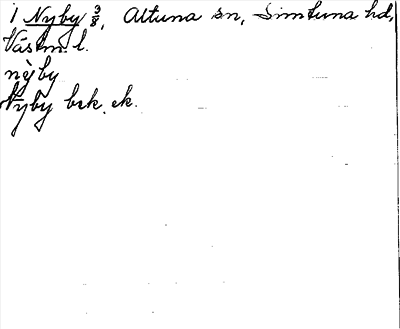 1 Nyby 3/8, Altuna sn, Simtuna hd,
Västm. l.
nỳby
Nyby brk. ek.